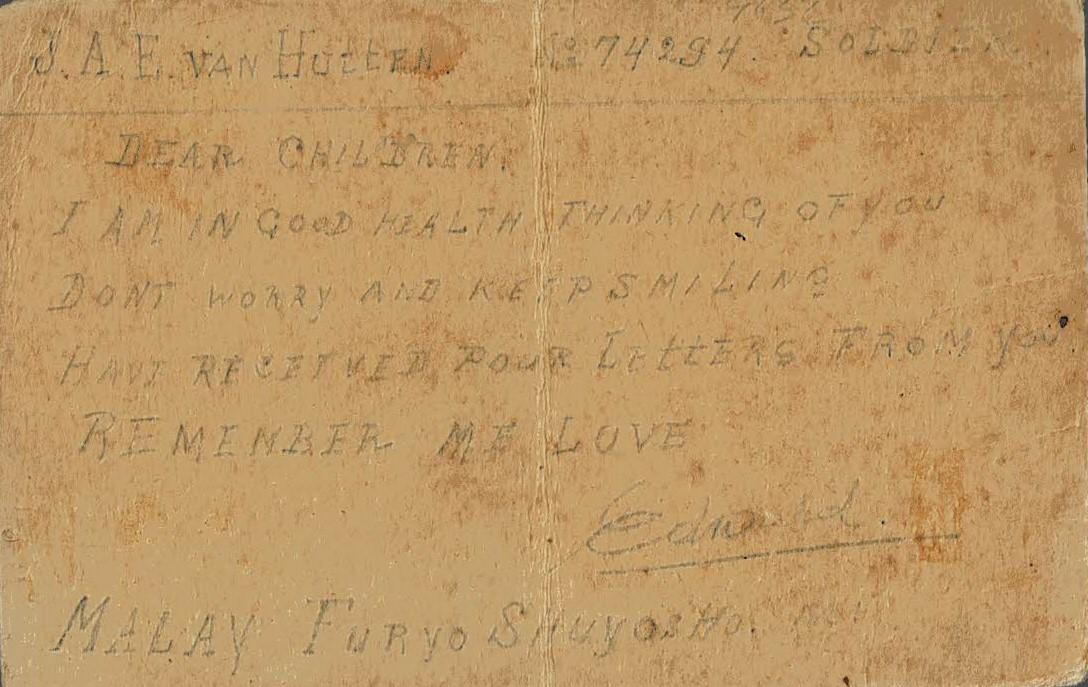 J. A. E. VAN HUTTEN. No 74294. SOLDIER.
DEAR CHILDREN.
I AM IN GOOD HEALTH THINKING OF YOU
DONT WORRY AND KEEP SMILING
HAVE RECEIVED POUR LETTERS FROM YOU.
REMEMBER ME LOVE
MALAY FURYO SHUYOSHO.